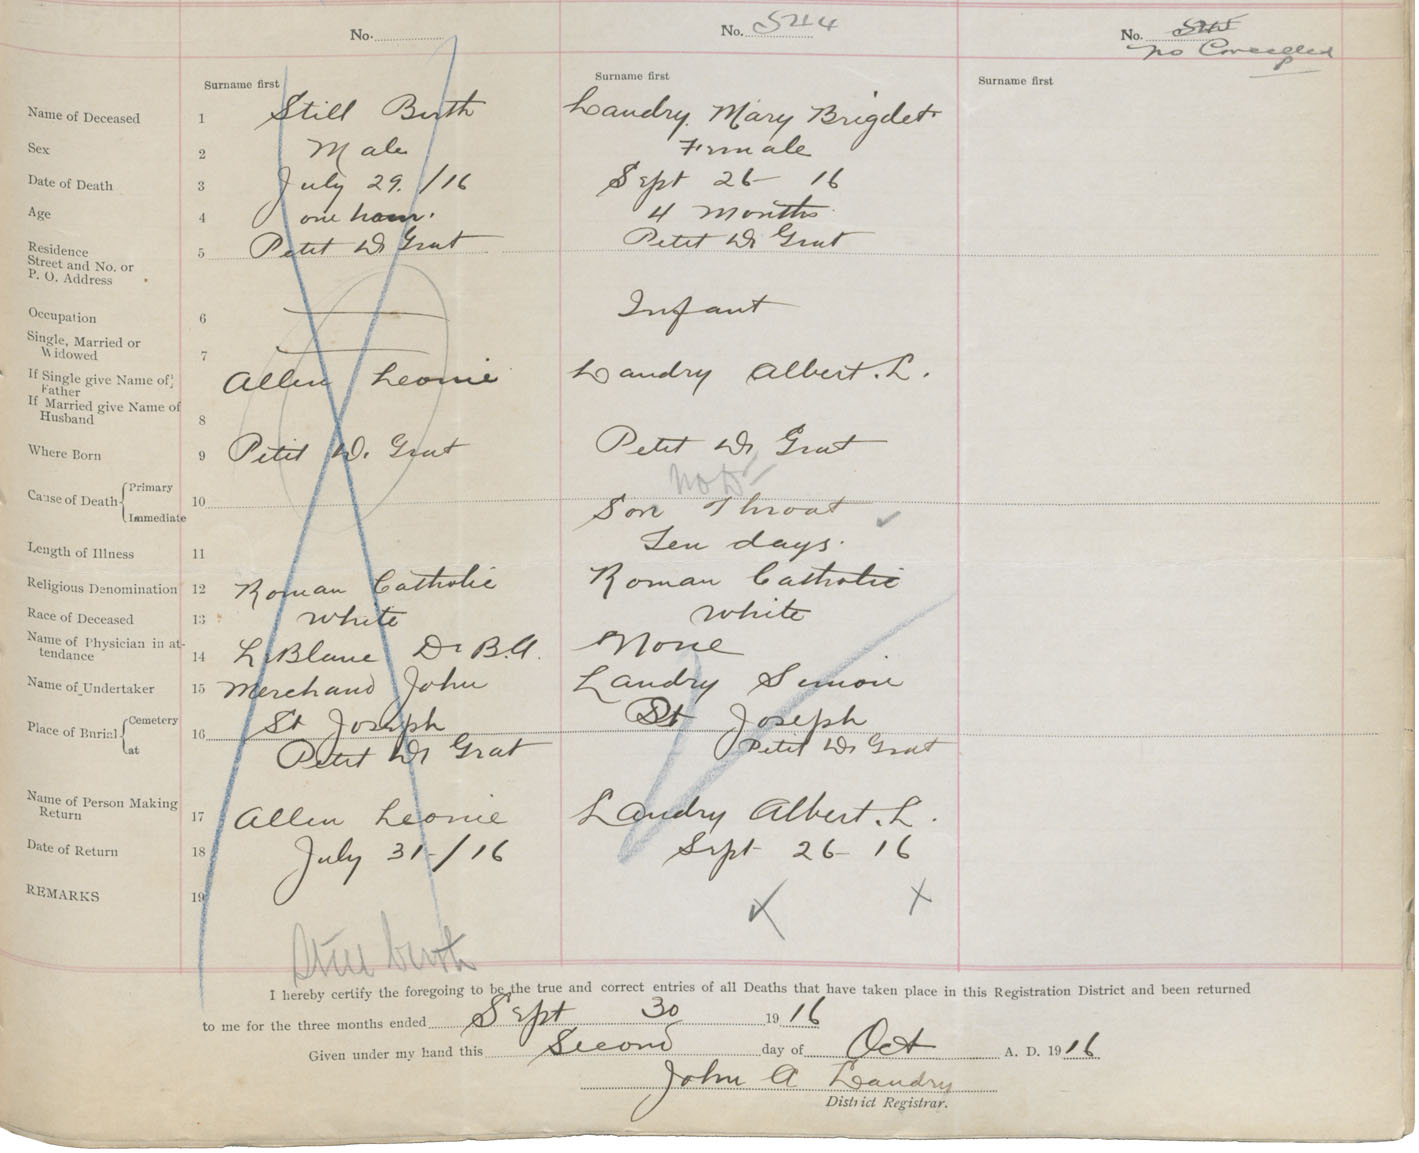 No.
No. 544
No. 545
no Cancelled
Surname first
Surname first
Surname first
Name of Deceased 1 Still Birth Landry Mary Brigdet
Sex 2 Male Female
Date of Death 3 July 29. /16 Sept 26 - 16
Age 4 one hour. 4 Months
Residence
Street and No. or
P. O. Address
5 Petit D. Grat Petit D. Grat
Occupation 6 Infant
Single, Married or
Widowed
7
If Single give Name of
Father
Allen Leonie Landry Albert. L.
If Married give Name of
Husband
8
Where Born 9 Petit D. Grat Petit D. Grat
Cause of Death { Primary
Immediate
10 Sore Throat
Length of Illness 11 Ten days.
Religious Denomination 12 Roman Catholic Roman Catholic
Race of Deceased 13 White White
Name of Physician in at-
tendance
14 LeBlanc Dr B.A. None
Name of Undertaker 15 Merchand John Landry Simon
Place of Burial { Cemetery
at
16 St Joseph St Joseph
Petit D. Grat Petit D. Grat
Name of Person Making
Return
17 Allen Leonie Landry Albert. L.
Date of Return 18 July 31-/16 Sept 26 - 16
REMARKS 19
Still birth
I hereby certify the foregoing to be the true and correct entries of all Deaths that have taken place in this Registration District and been returned
to me for the three months ended Sept 30 1916
Given under my hand this Second day of Oct A. D. 1916
John A Landry
District Registrar.